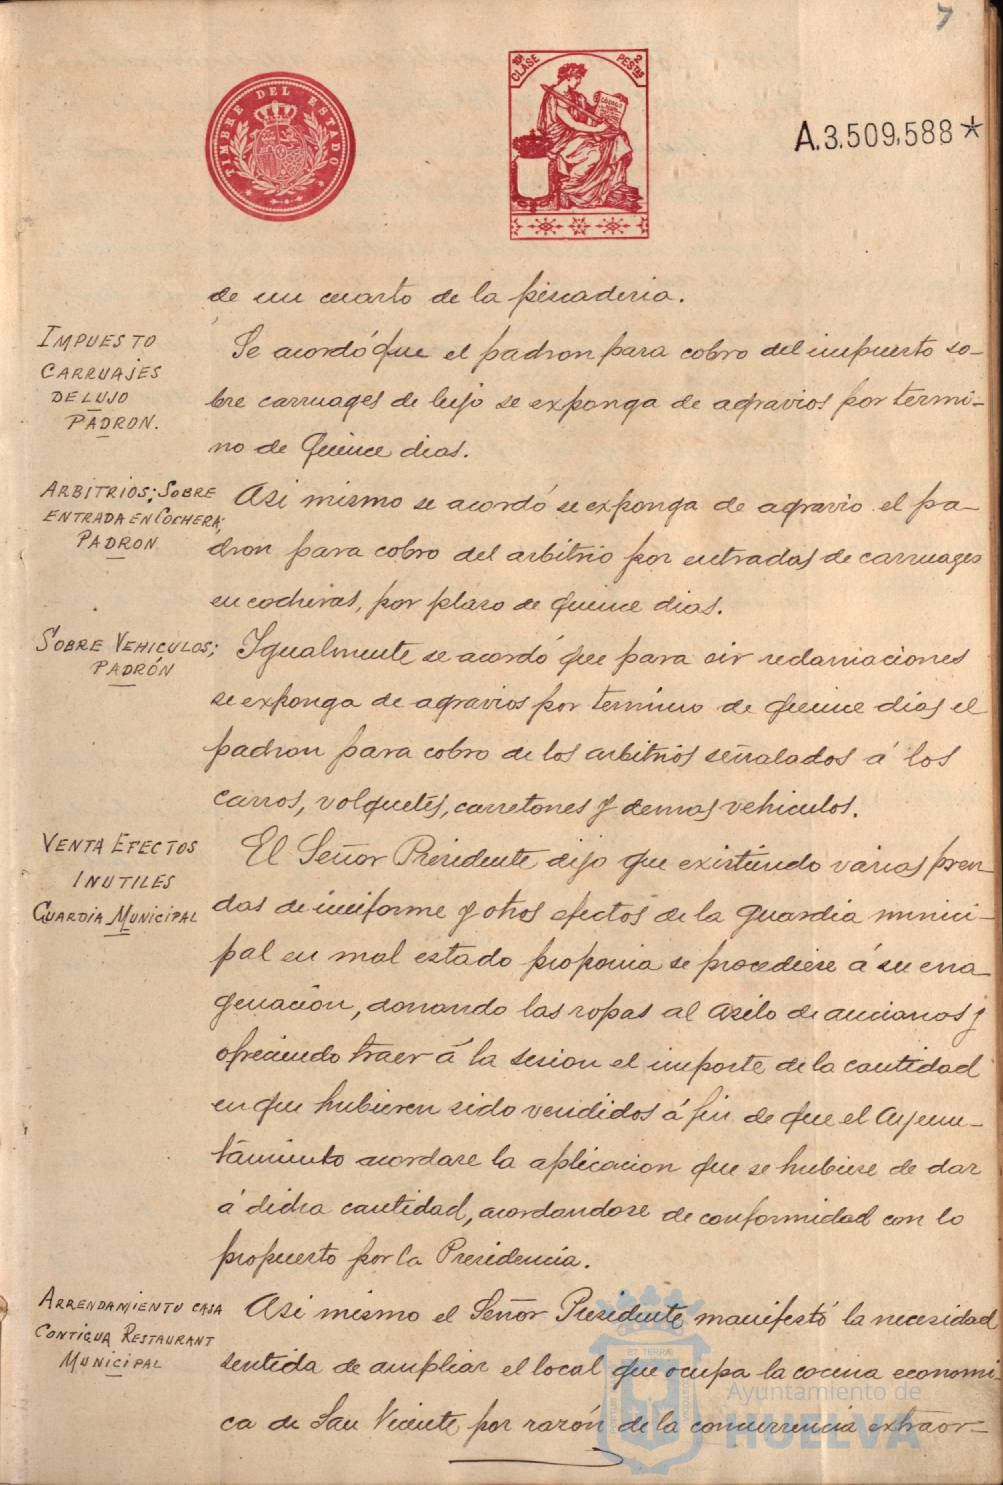 7
TIMBRE DEL ESTADO
10ª CLASE 2 PESTAS
A.3.509.588*
de un cuarto de la pescaderia.
IMPUESTO
CARRUAJES
DE LUJO
PADRON.
Se acordó que el padron para cobro del impuesto so-
bre carruages de lujo se exponga de agravios por termi-
no de quince dias.
ARBITRIOS; SOBRE
ENTRADA EN COCHERA;
PADRON
Asi mismo se acordó se exponga de agravio el pa-
dron para cobro del arbitrio por entradas de carruages
en cocheras, por plazo de quince dias.
SOBRE VEHICULOS;
PADRÓN
Igualmente se acordó que para oir reclamaciones
se exponga de agravios por termino de quince dias el
padron para cobro de los arbitrios señalados á los
carros, volquetes, carretones y demas vehiculos.
VENTA EFECTOS
INUTILES
GUARDIA MUNICIPAL
El Señor Presidente dijo que existiendo varias pren-
das de uniforme y otros efectos de la guardia munici-
pal en mal estado proponia se procediese á su ena
genación, donando las ropas al Asilo de ancianos y
ofreciendo traer á la sesion el importe de la cantidad
en que hubieren sido vendidos á fin de que el Ayun-
tamiento acordase la aplicacion que se hubiese de dar
á dicha cantidad, acordandose de conformidad con lo
propuesto por la Presidencia.
ARRENDAMIENTO CASA
CONTIGUA RESTAURANT
MUNICIPAL
Asi mismo el Señor Presidente manifestó la necesidad
sentida de ampliar el local que ocupa la cocina economi-
ca de San Vicente, por razón de la concurrencia extraor-
Ayuntamiento de
HUELVA